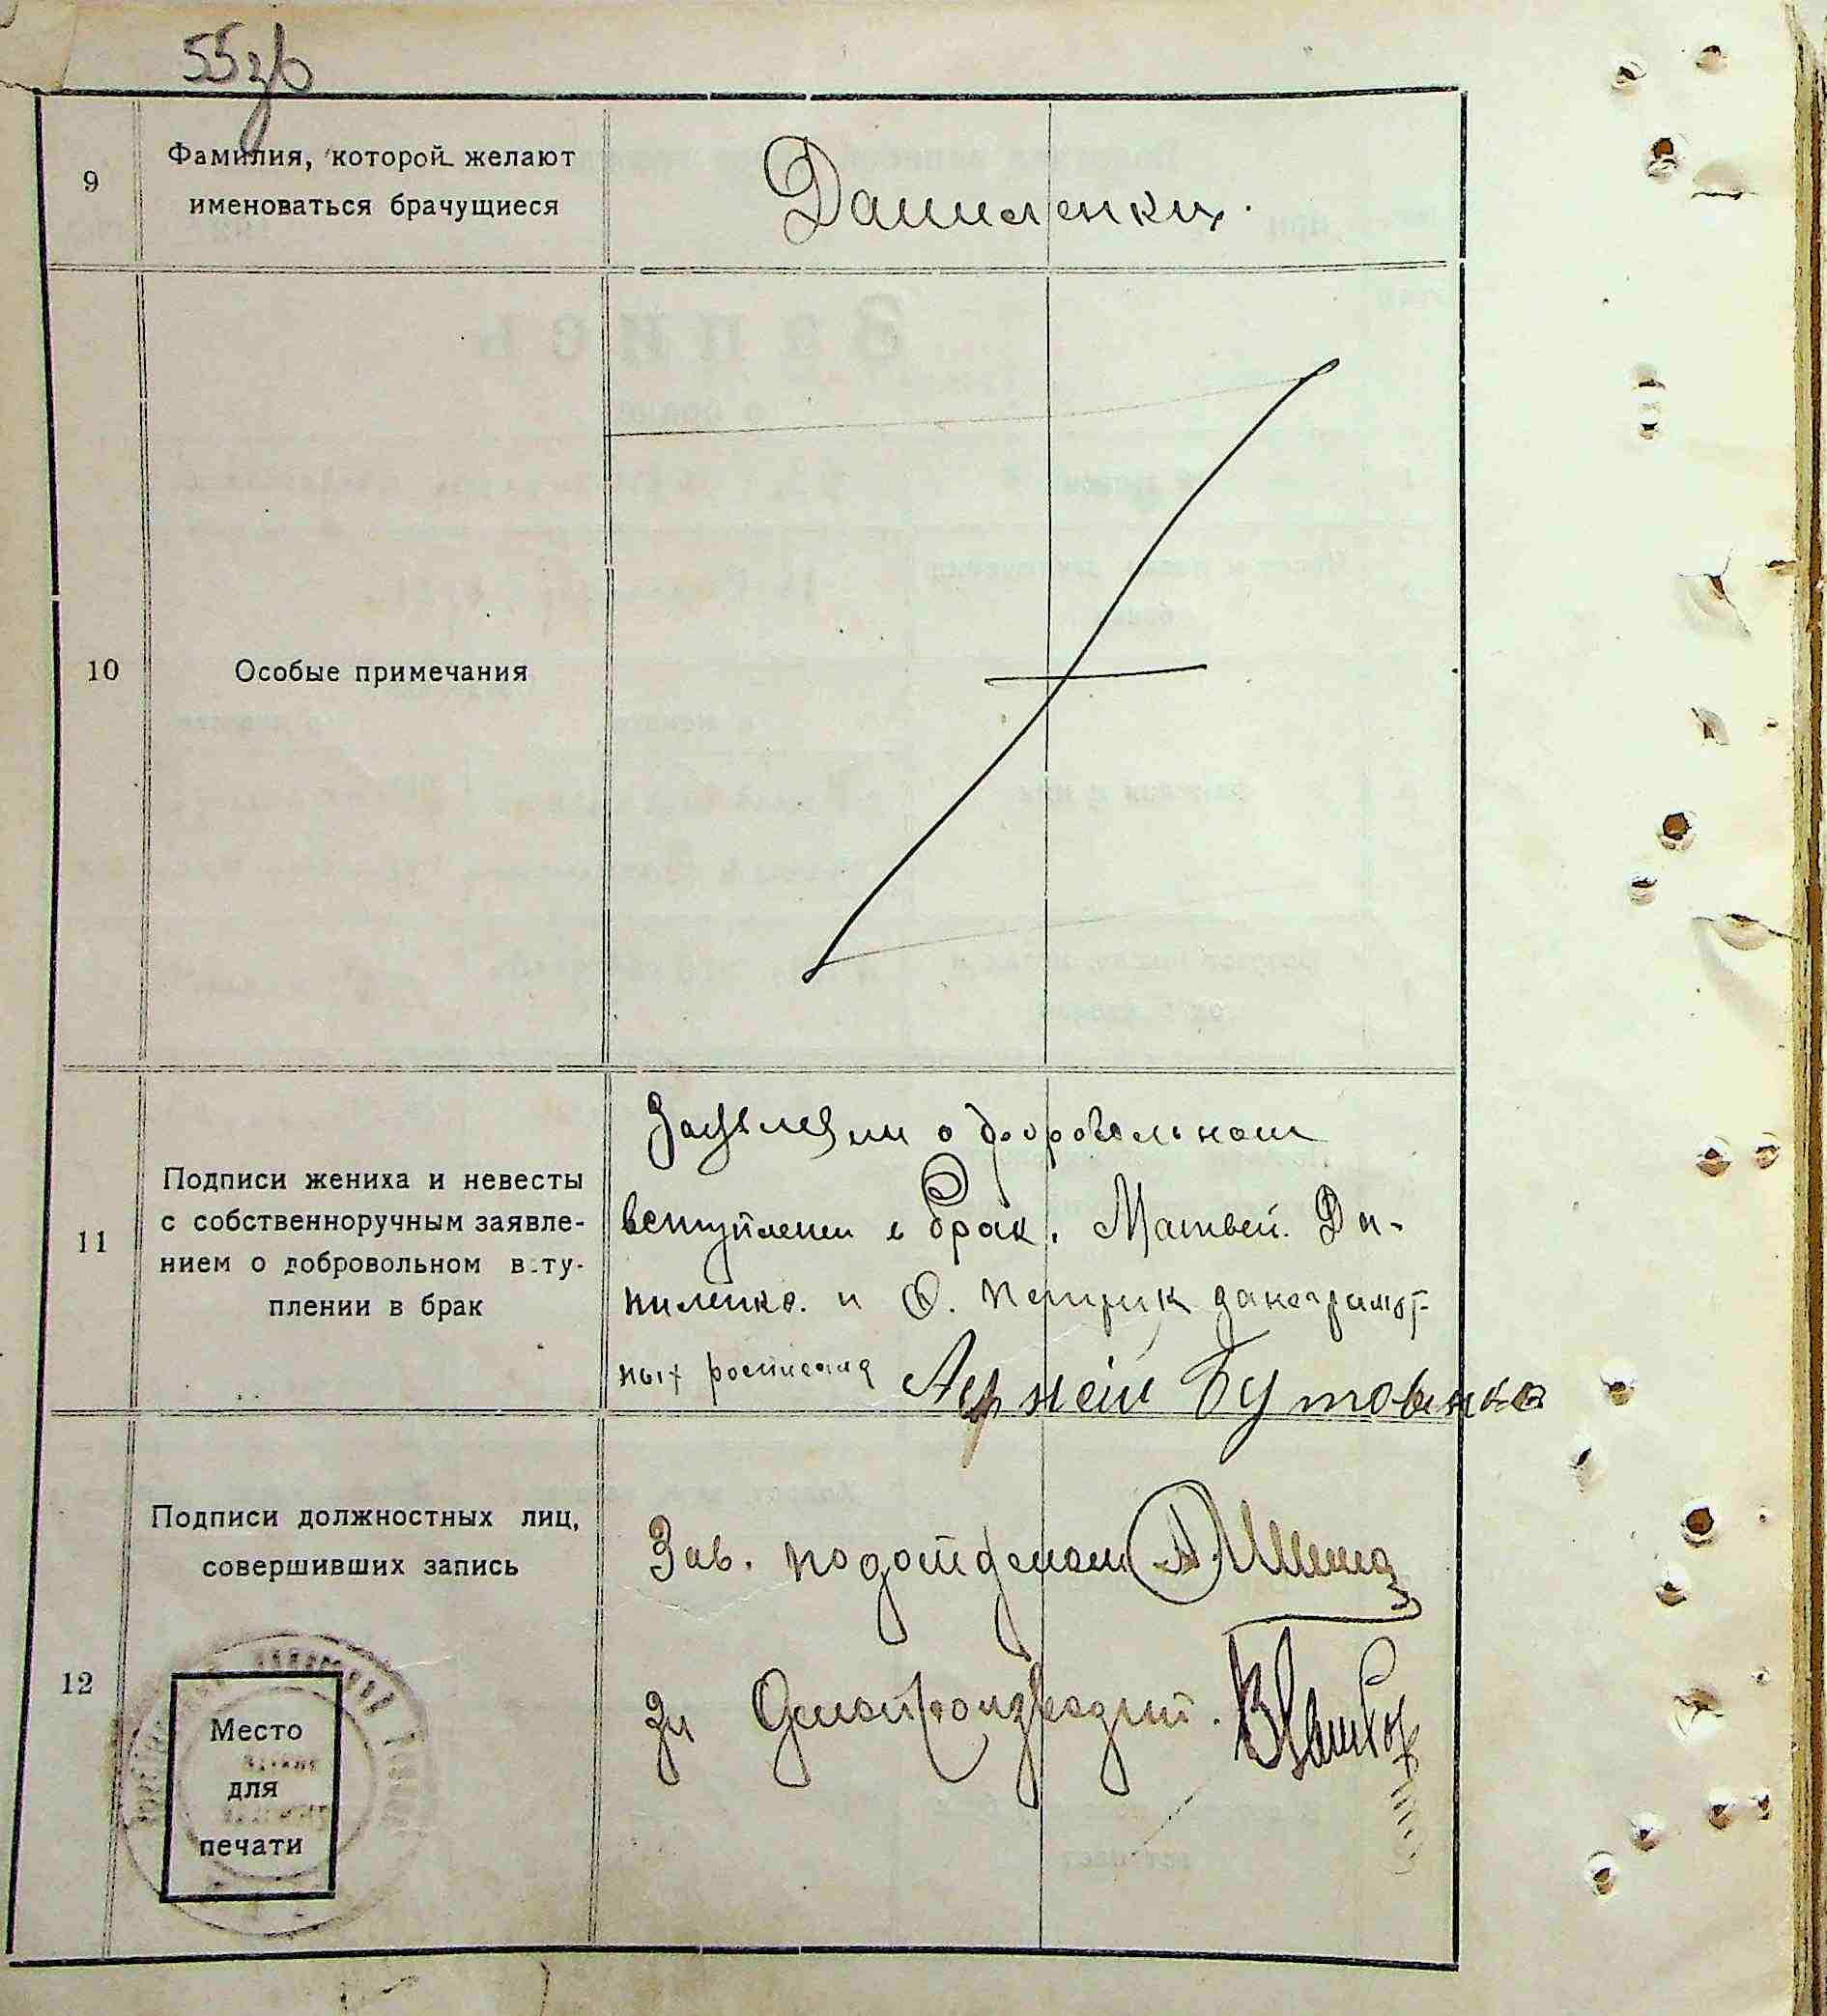 55 зв
9
Фамилия, которой желают
именоваться брачущиеся
Даниленки.
10
Особые примечания
11
Подписи жениха и невесты
с собственноручным заявле-
нием о добровольном всту-
плении в брак
о добровольном
вступлении в брак. Матвей. Да-
ниленко. и О. Петрик за неграмот-
ных
12
Подписи должностных лиц,
совершивших запись
Зав. подотделом А.
За
Место
для
печати